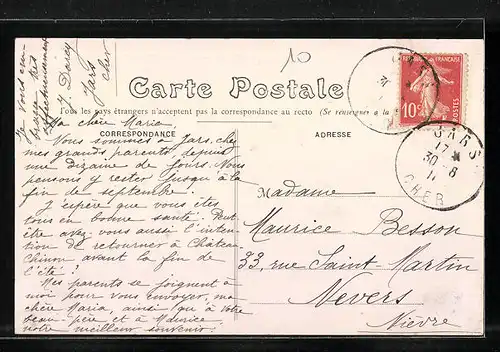 Je vous em-
brasse très
affectueusement
Y Darcy
Jars
Cher
10
RÉPUBLIQUE FRANÇAISE
10c
POSTES
JARS
17 *
30 - 8
11
CHER
Carte Postale
Tous les pays étrangers n'acceptent pas la correspondance au recto (Se renseigner à la
CORRESPONDANCE
ADRESSE
Ma chère Maria
Vous sommes à Jars, chez
mes grands parents depuis
une dizaine de jours. Nous
pensons y rester jusqu'à la
fin de septembre.
J'espère que vous êtes
tous en bonne santé. Peut
être avez-vous aussi l'inten-
tion de retourner à Château-
Chinon avant la fin de
l'été ?
Mes parents se joignent à
moi pour vous envoyer, ma
chère Maria, ainsi qu'à votre
beau-père et à Maurice
notre meilleur souvenir.
Madame
Maurice Besson
33, rue Saint-Martin
Nevers
Nièvre